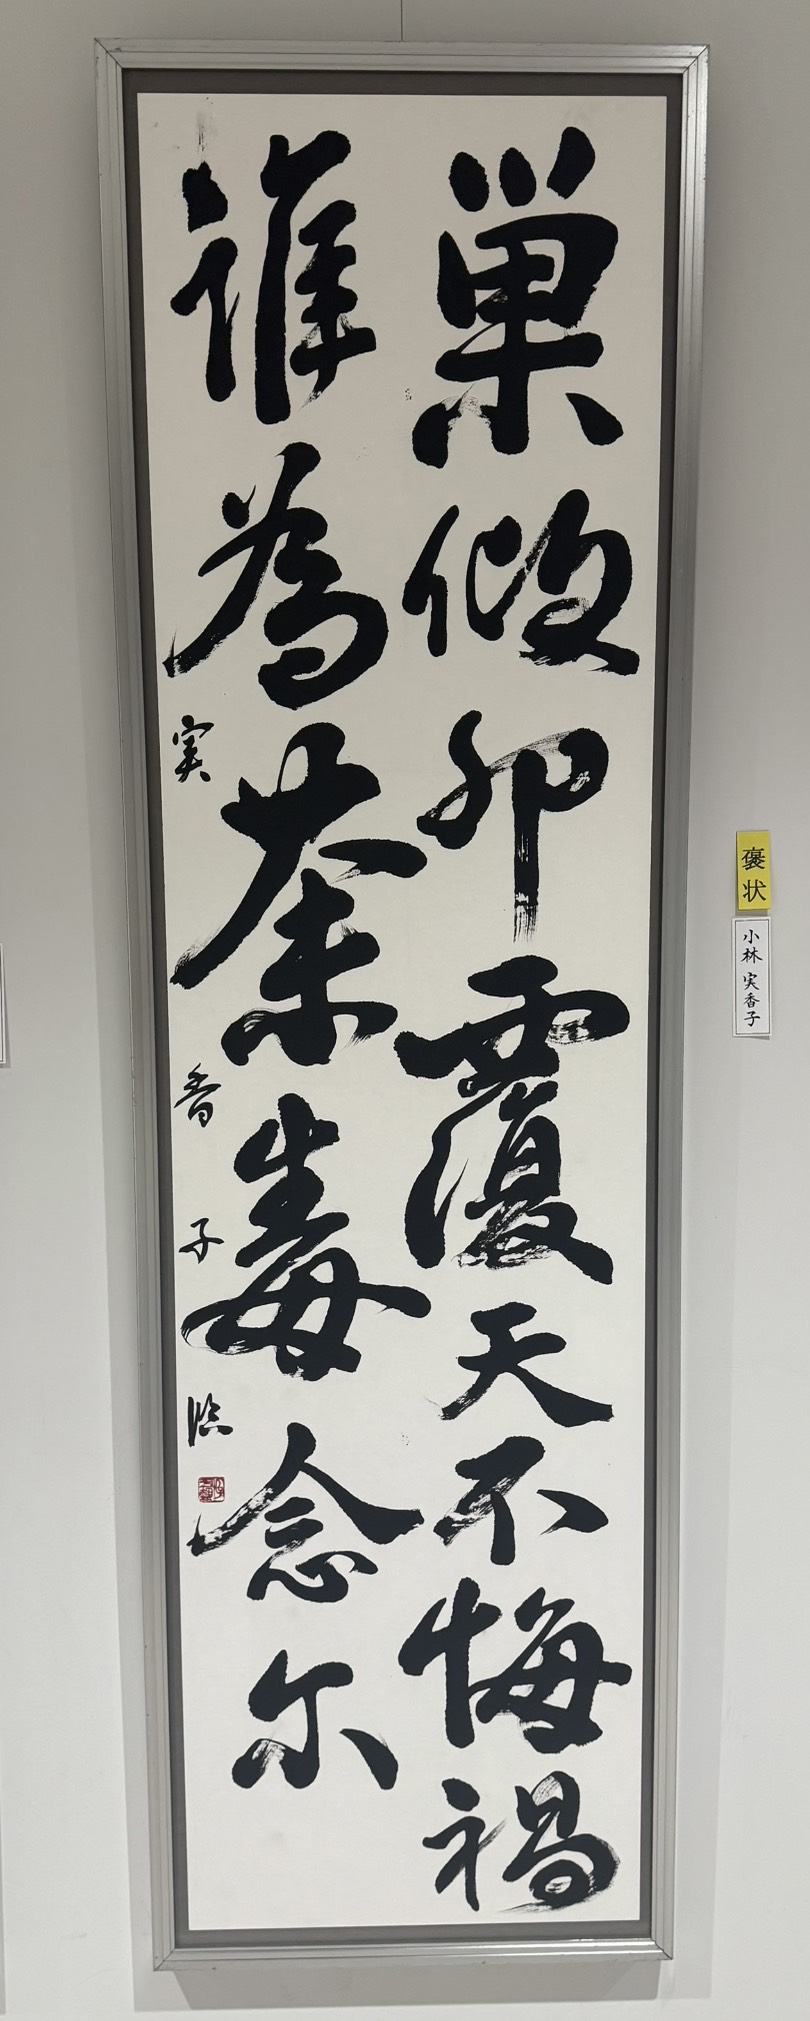 巢傾卵覆天不悔禍
誰為荼毒念尔
実香子臨
褒状
小林 実香子